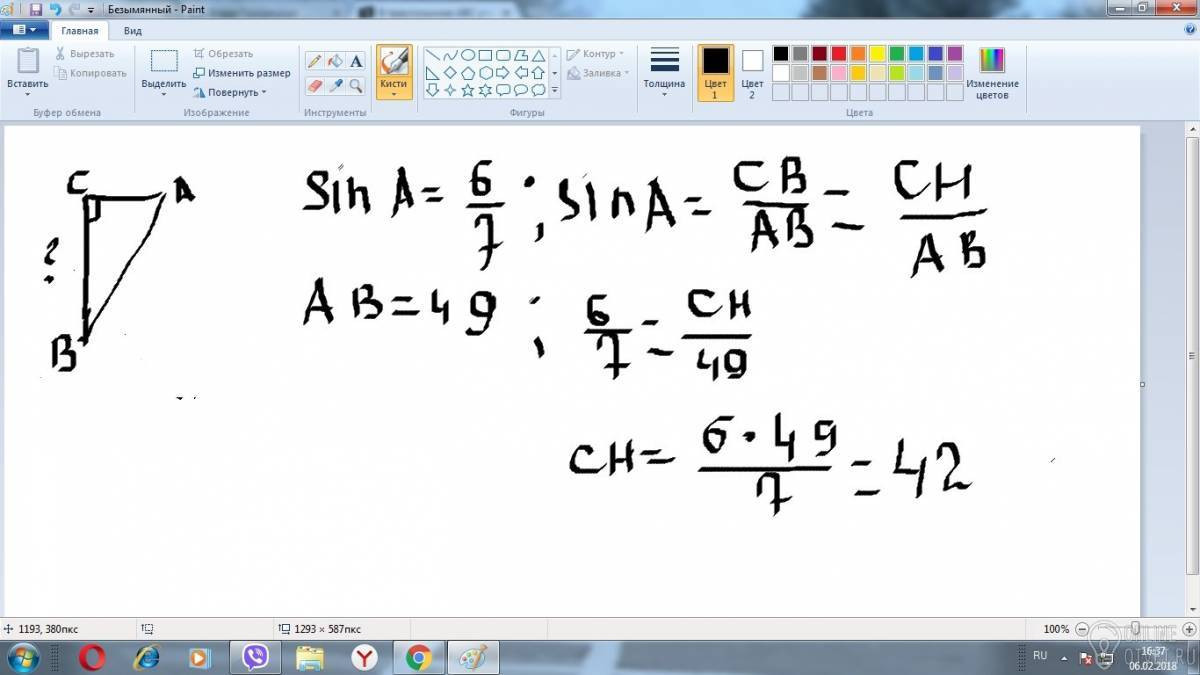 Безымянный - Paint
Главная
Вид
Вставить
Вырезать
Копировать
Буфер обмена
Выделить
Обрезать
Изменить размер
Повернуть
Изображение
A
Инструменты
Кисти
Фигуры
Контур
Заливка
Толщина
Цвет 1
Цвет 2
Изменение цветов
Цвета
C A
?
B
Sin A = 6/7 ; sin A = CB/AB = CH/AB
AB = 49 ; 6/7 = CH/49
CH = 6·49/7 = 42
1193, 380пкс
1293 × 587пкс
100%
RU
16:37
06.02.2018
ONLINE
OTVET.RU